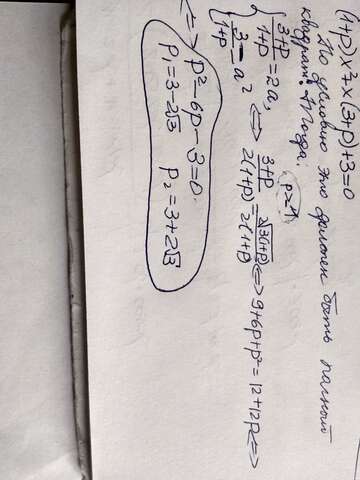 (1+p)x²+x(3+p)+3=0
По условию это должен быть полный
квадрат. Тогда:
{ (3+p)/(1+p) = 2a, 3/(1+p) = a² ⇔ (3+p)/(2(1+p)) = 2√(3(1+p))/(2(1+p)) ⇔ 9+6p+p² = 12+12p ⇔
p>-1
⇔ p²-6p-3=0.
p₁=3-2√3 p₂=3+2√3